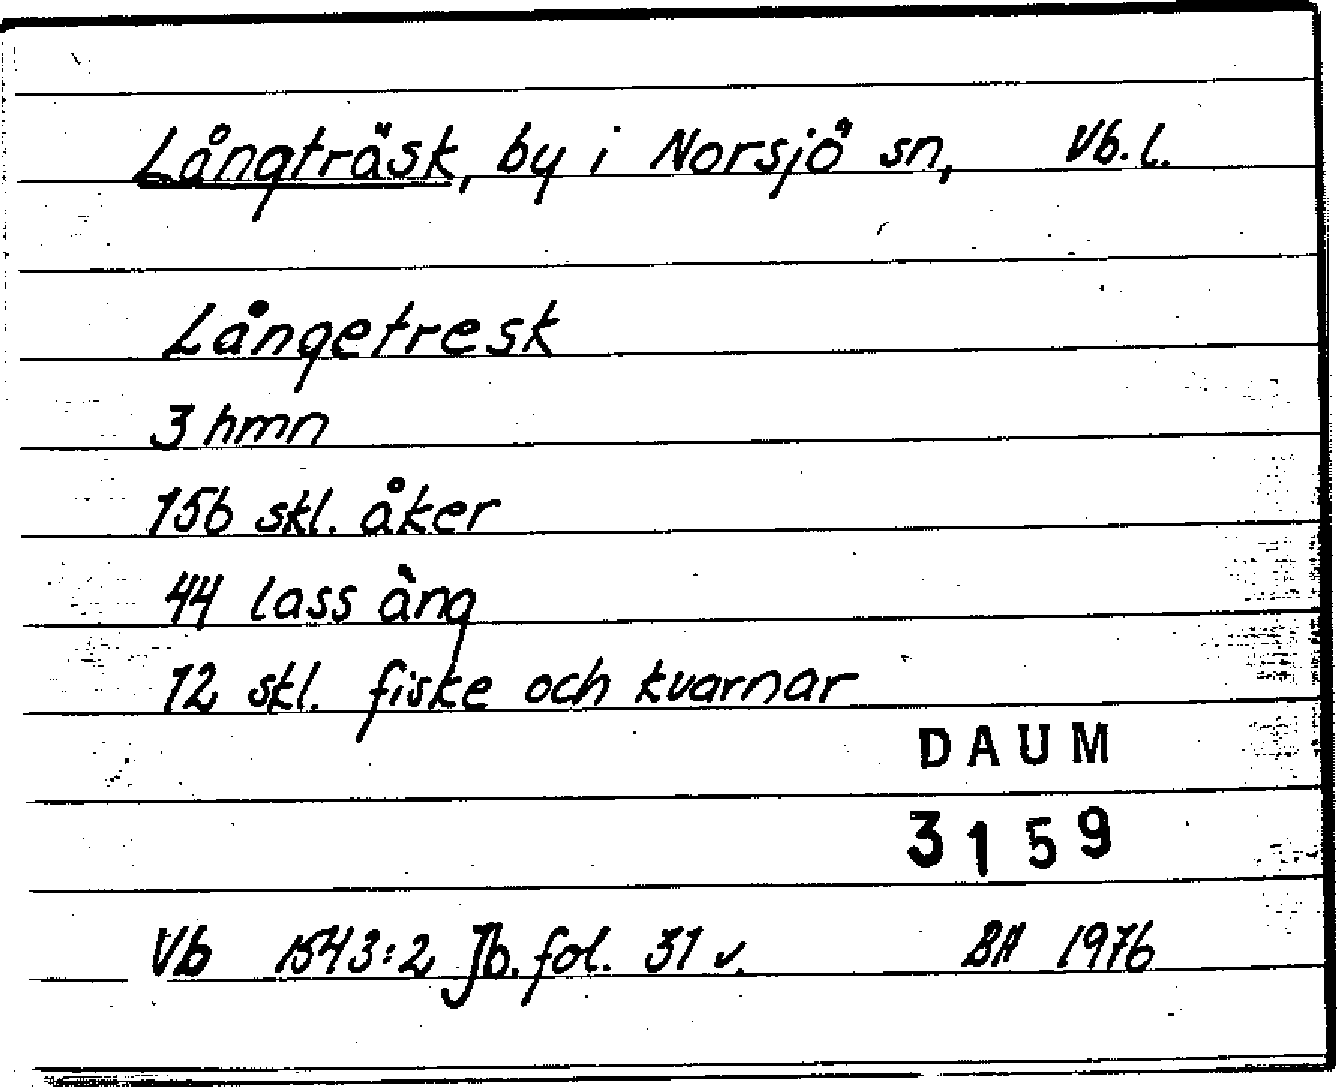 Långträsk, by i Norsjö sn, Vb. l.
Långetresk
3 hmn
156 skl. åker
44 lass äng
12 skl. fiske och kvarnar
DAUM
3159
Vb 1543:2 Jb. fol. 31 v. BA 1976